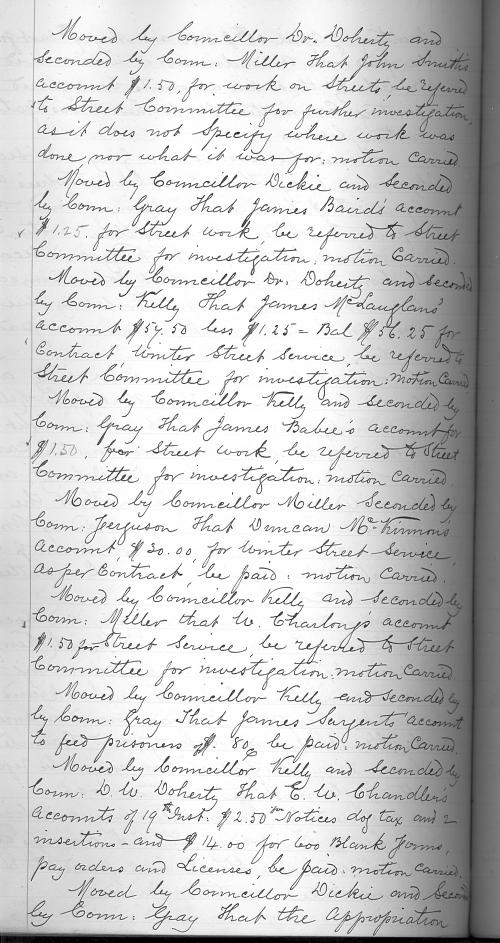 Moved by Councillor Dr. Doherty and
seconded by Coun: Miller That John Smith's
account $1.50, for work on Streets, be referred
to Street Committee, for further investigation,
as it does not Specify where work was
done, nor what it was for: motion carried
Moved by Councillor Dickie and Seconded
by Coun: Gray That James Baird's account
$1.25 for Street work, be referred to Street
Committee for investigation: motion Carried.
Moved by Councillor Dr. Doherty and Seconded
by Coun: Kelly That James McLauglans'
account $57.50 less $1.25 = Bal $56.25 for
Contract Winter Street Service, be referred to
Street Committee for investigation: motion Carried
Moved by Councillor Kelly and Seconded by
Coun: Gray That James Babie's account for
$1.50, for Street work, be referred to Street
Committee for investigation: motion carried.
Moved by Councillor Miller Seconded by
Coun: Ferguson That Duncan McKinnon's
account, $20.00, for Winter Street Service,
as per Contract, be paid: motion Carried.
Moved by Councillor Kelly and Seconded by
Coun: Miller that W. Charlong's account
$1.50 for Street Service, be referred to Street
Committee for investigation: motion Carried.
Moved by Councillor Kelly and Seconded by
by Coun: Gray That James Sargents' account
to feed prisoners $.80c be paid: motion Carried.
Moved by Councillor Kelly and Seconded by
Coun: D. W. Doherty That E. W. Chandler's
accounts of 19th Inst. $2.50 for Notices dog tax and 2
insertions - and $14.00 for 600 Blank Forms,
pay orders and Licenses, be paid: motion Carried.
Moved by Councillor Dickie and Second
by Coun: Gray That the Appropriation